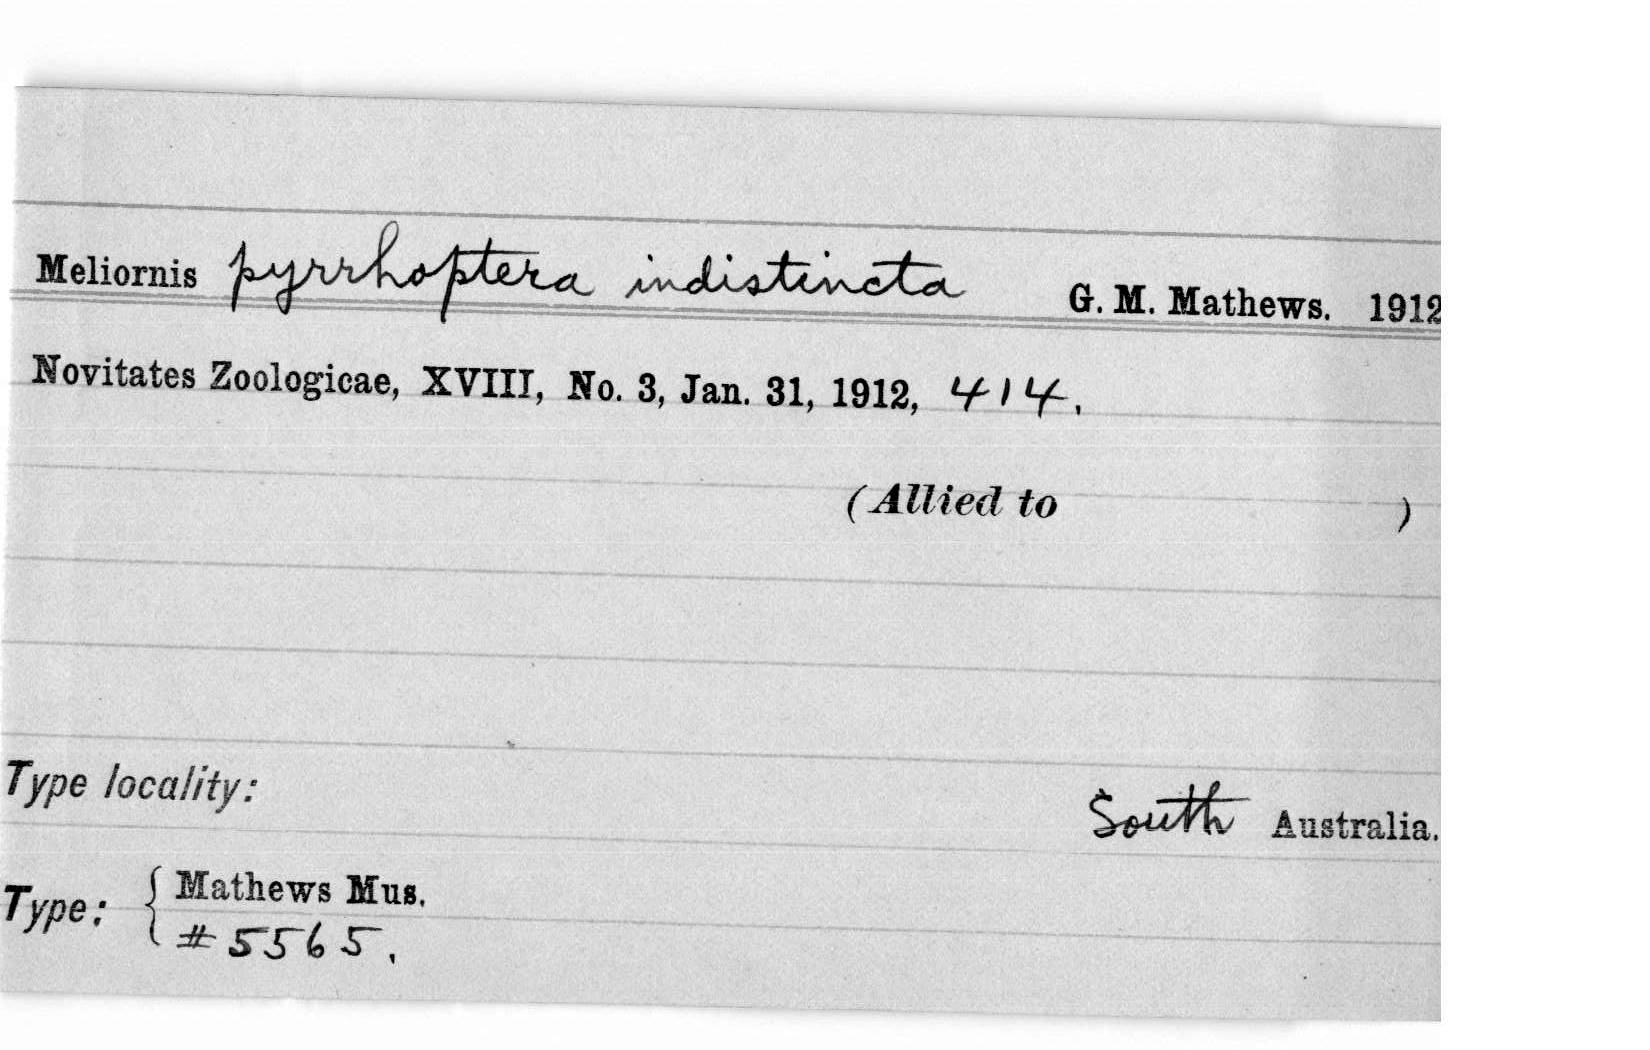 Meliornis pyrrhoptera indistincta G. M. Mathews. 1912
Novitates Zoologicae, XVIII, No. 3, Jan. 31, 1912, 414.
(Allied to )
Type locality: South Australia.
Type: { Mathews Mus.
#5565.